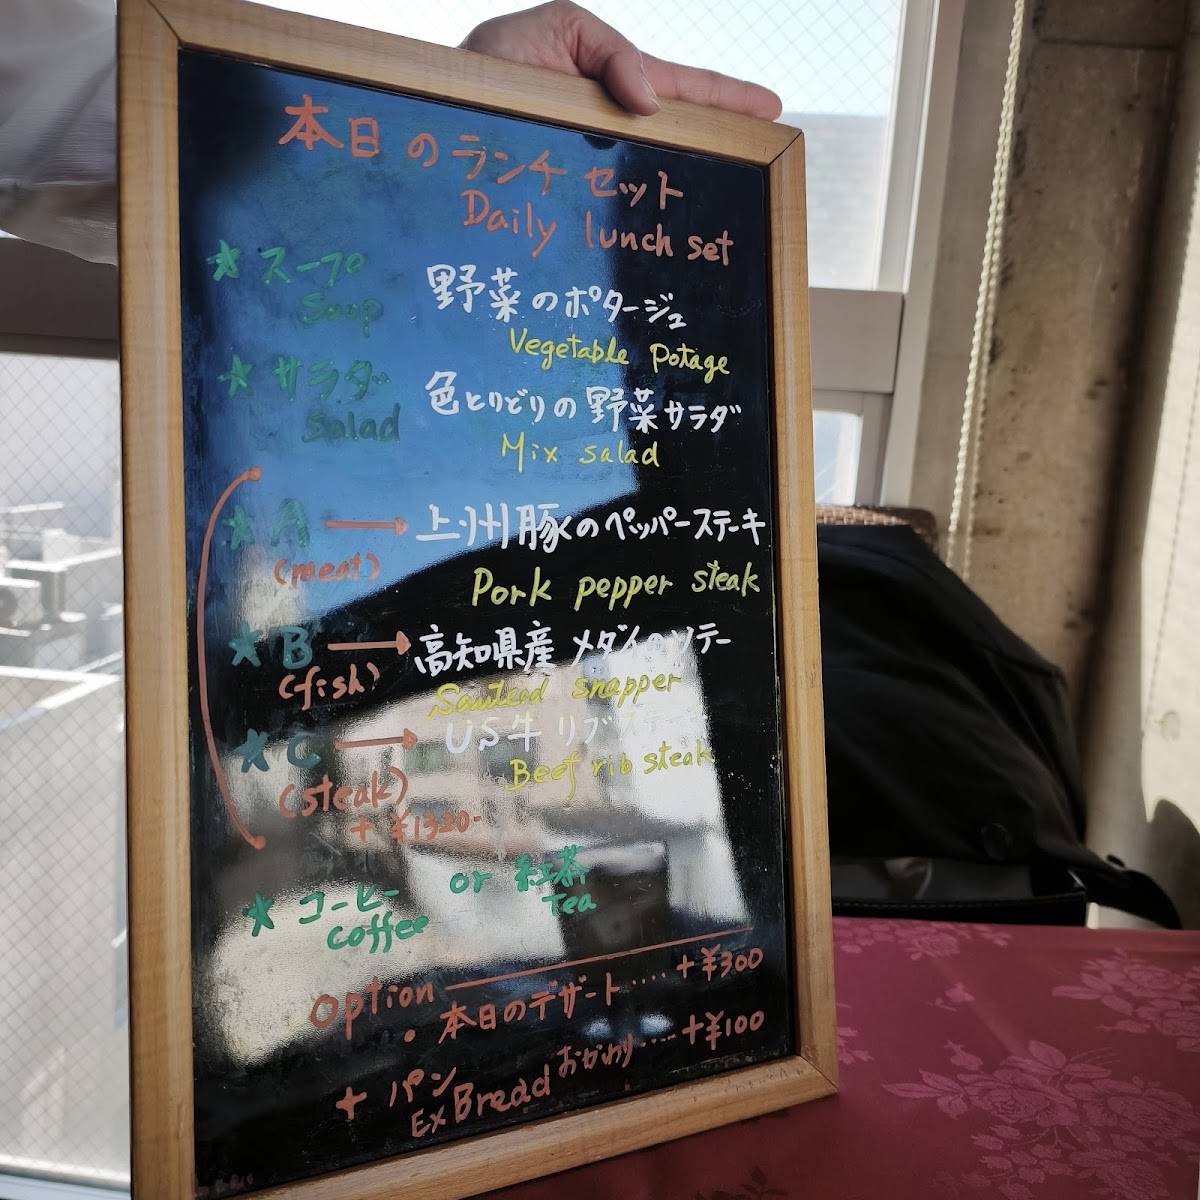 本日のランチセット
Daily lunch set
★ スープ 野菜のポタージュ
Soup Vegetable Potage
★ サラダ 色とりどりの野菜サラダ
Salad Mix salad
★ A → 上州豚のペッパーステーキ
(meat) Pork pepper steak
★ B → 高知県産 メダイのソテー
(fish) Sautead snapper
★ C → US牛リブステーキ
(steak) Beef rib steak
+ ¥1320-
★ コーヒー or 紅茶
coffee Tea
option
・本日のデザート····+¥300
+ パン おかわり····+¥100
Ex Bread